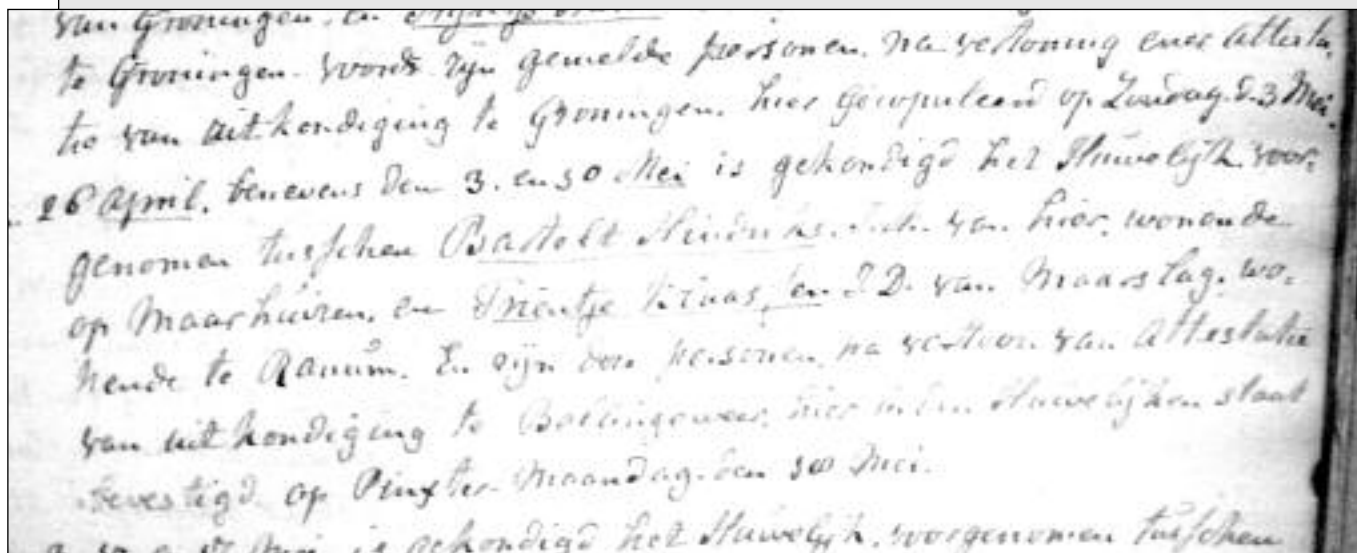 van Groningen, en
te Groningen. wordt zijn gemelde personen, na vertoning ener attesta,
tie van uitkondiging te Groningen, hier gecopuleerd op Zondag. d. 3 Mei.
26 April, benevens den 3. en 10 Mei is gekondigd het Huwelijk voor:
genomen tusschen Bartelt Hindriks. van hier, wonende
op Maarhuizen, en Trientje Klaas, en J. D. van Maarslag, wo,
nende te Ranum. En zijn deze personen, na vertoon van Attestatie
van uitkondiging te Bellingeweer, hier in den Huwelijken staat
bevestigd op Pinxter-Maandag. den Mei.
Mei is gekondigd het Huwelijk, voorgenomen tusschen